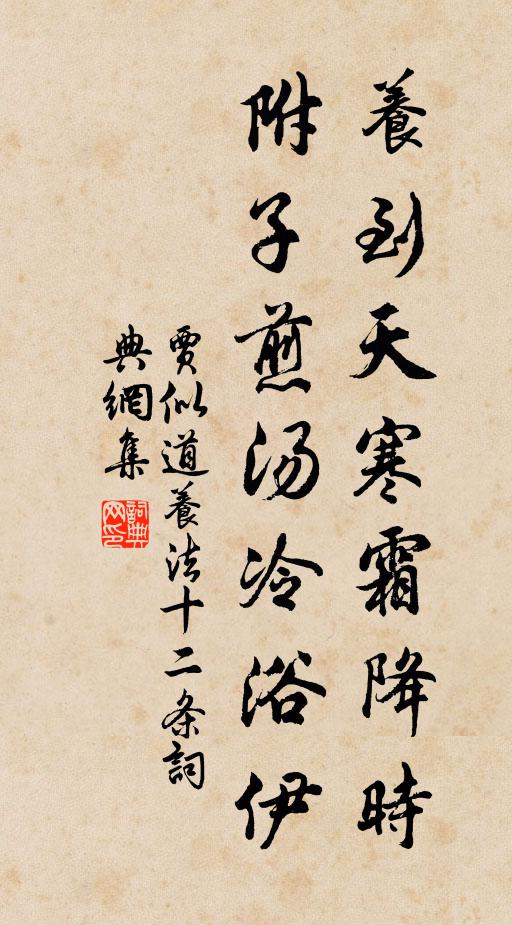 養到天寒霜降時
附子煎汤冷浴伊
賈似道養法十二条詞
典網集
詞典网印